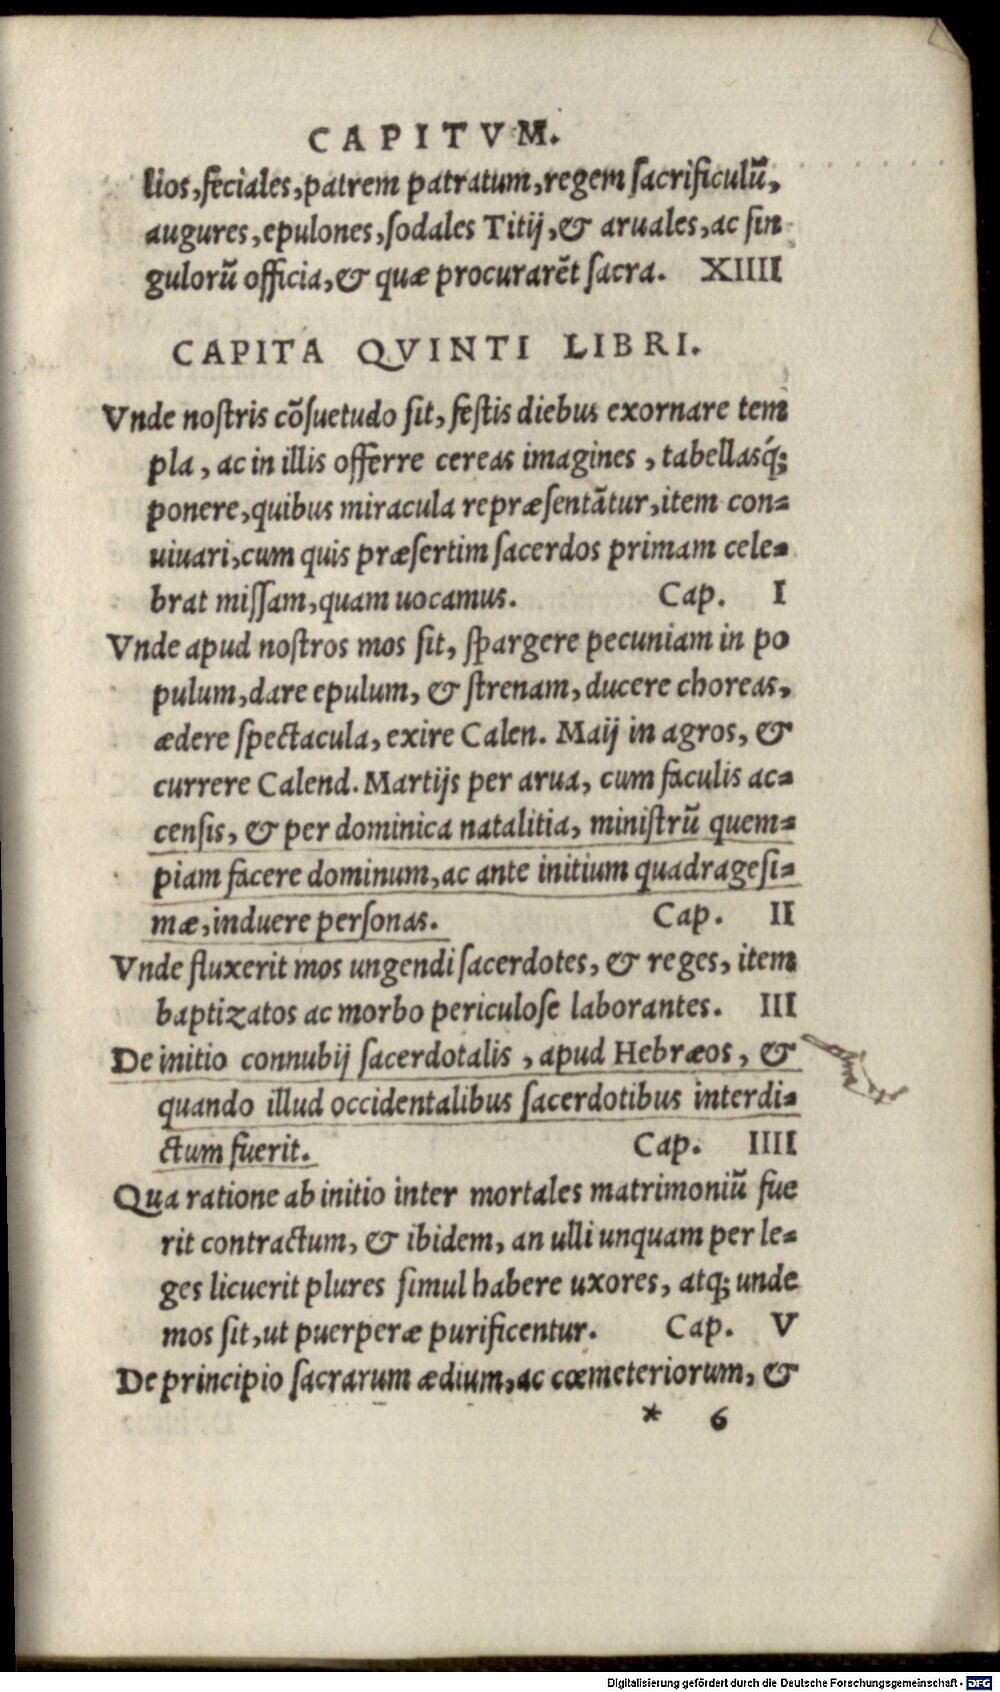 CAPITVM.
lios, feciales, patrem patratum, regem sacrificulū,
augures, epulones, sodales Titij, & aruales, ac sin
gulorū officia, & quæ procurarēt sacra. XIIII
CAPITA QVINTI LIBRI.
Vnde nostris cōsuetudo sit, festis diebus exornare tem
pla, ac in illis offerre cereas imagines, tabellasq́;
ponere, quibus miracula repræsentātur, item con=
uiuari, cum quis præsertim sacerdos primam cele=
brat missam, quam uocamus. Cap. I
Vnde apud nostros mos sit, spargere pecuniam in po
pulum, dare epulum, & strenam, ducere choreas,
ædere spectacula, exire Calen. Maij in agros, &
currere Calend. Martijs per arua, cum faculis ac=
censis, & per dominica natalitia, ministrū quem=
piam facere dominum, ac ante initium quadragesi=
mæ, induere personas. Cap. II
Vnde fluxerit mos ungendi sacerdotes, & reges, item
baptizatos ac morbo periculose laborantes. III
De initio connubij sacerdotalis, apud Hebræos, &
quando illud occidentalibus sacerdotibus interdi=
ctum fuerit. Cap. IIII
Qua ratione ab initio inter mortales matrimoniū fue
rit contractum, & ibidem, an ulli unquam per le=
ges licuerit plures simul habere uxores, atq; unde
mos sit, ut puerperæ purificentur. Cap. V
De principio sacrarum ædium, ac cœmeteriorum, &
* 6
Digitalisierung gefördert durch die Deutsche Forschungsgemeinschaft - DFG